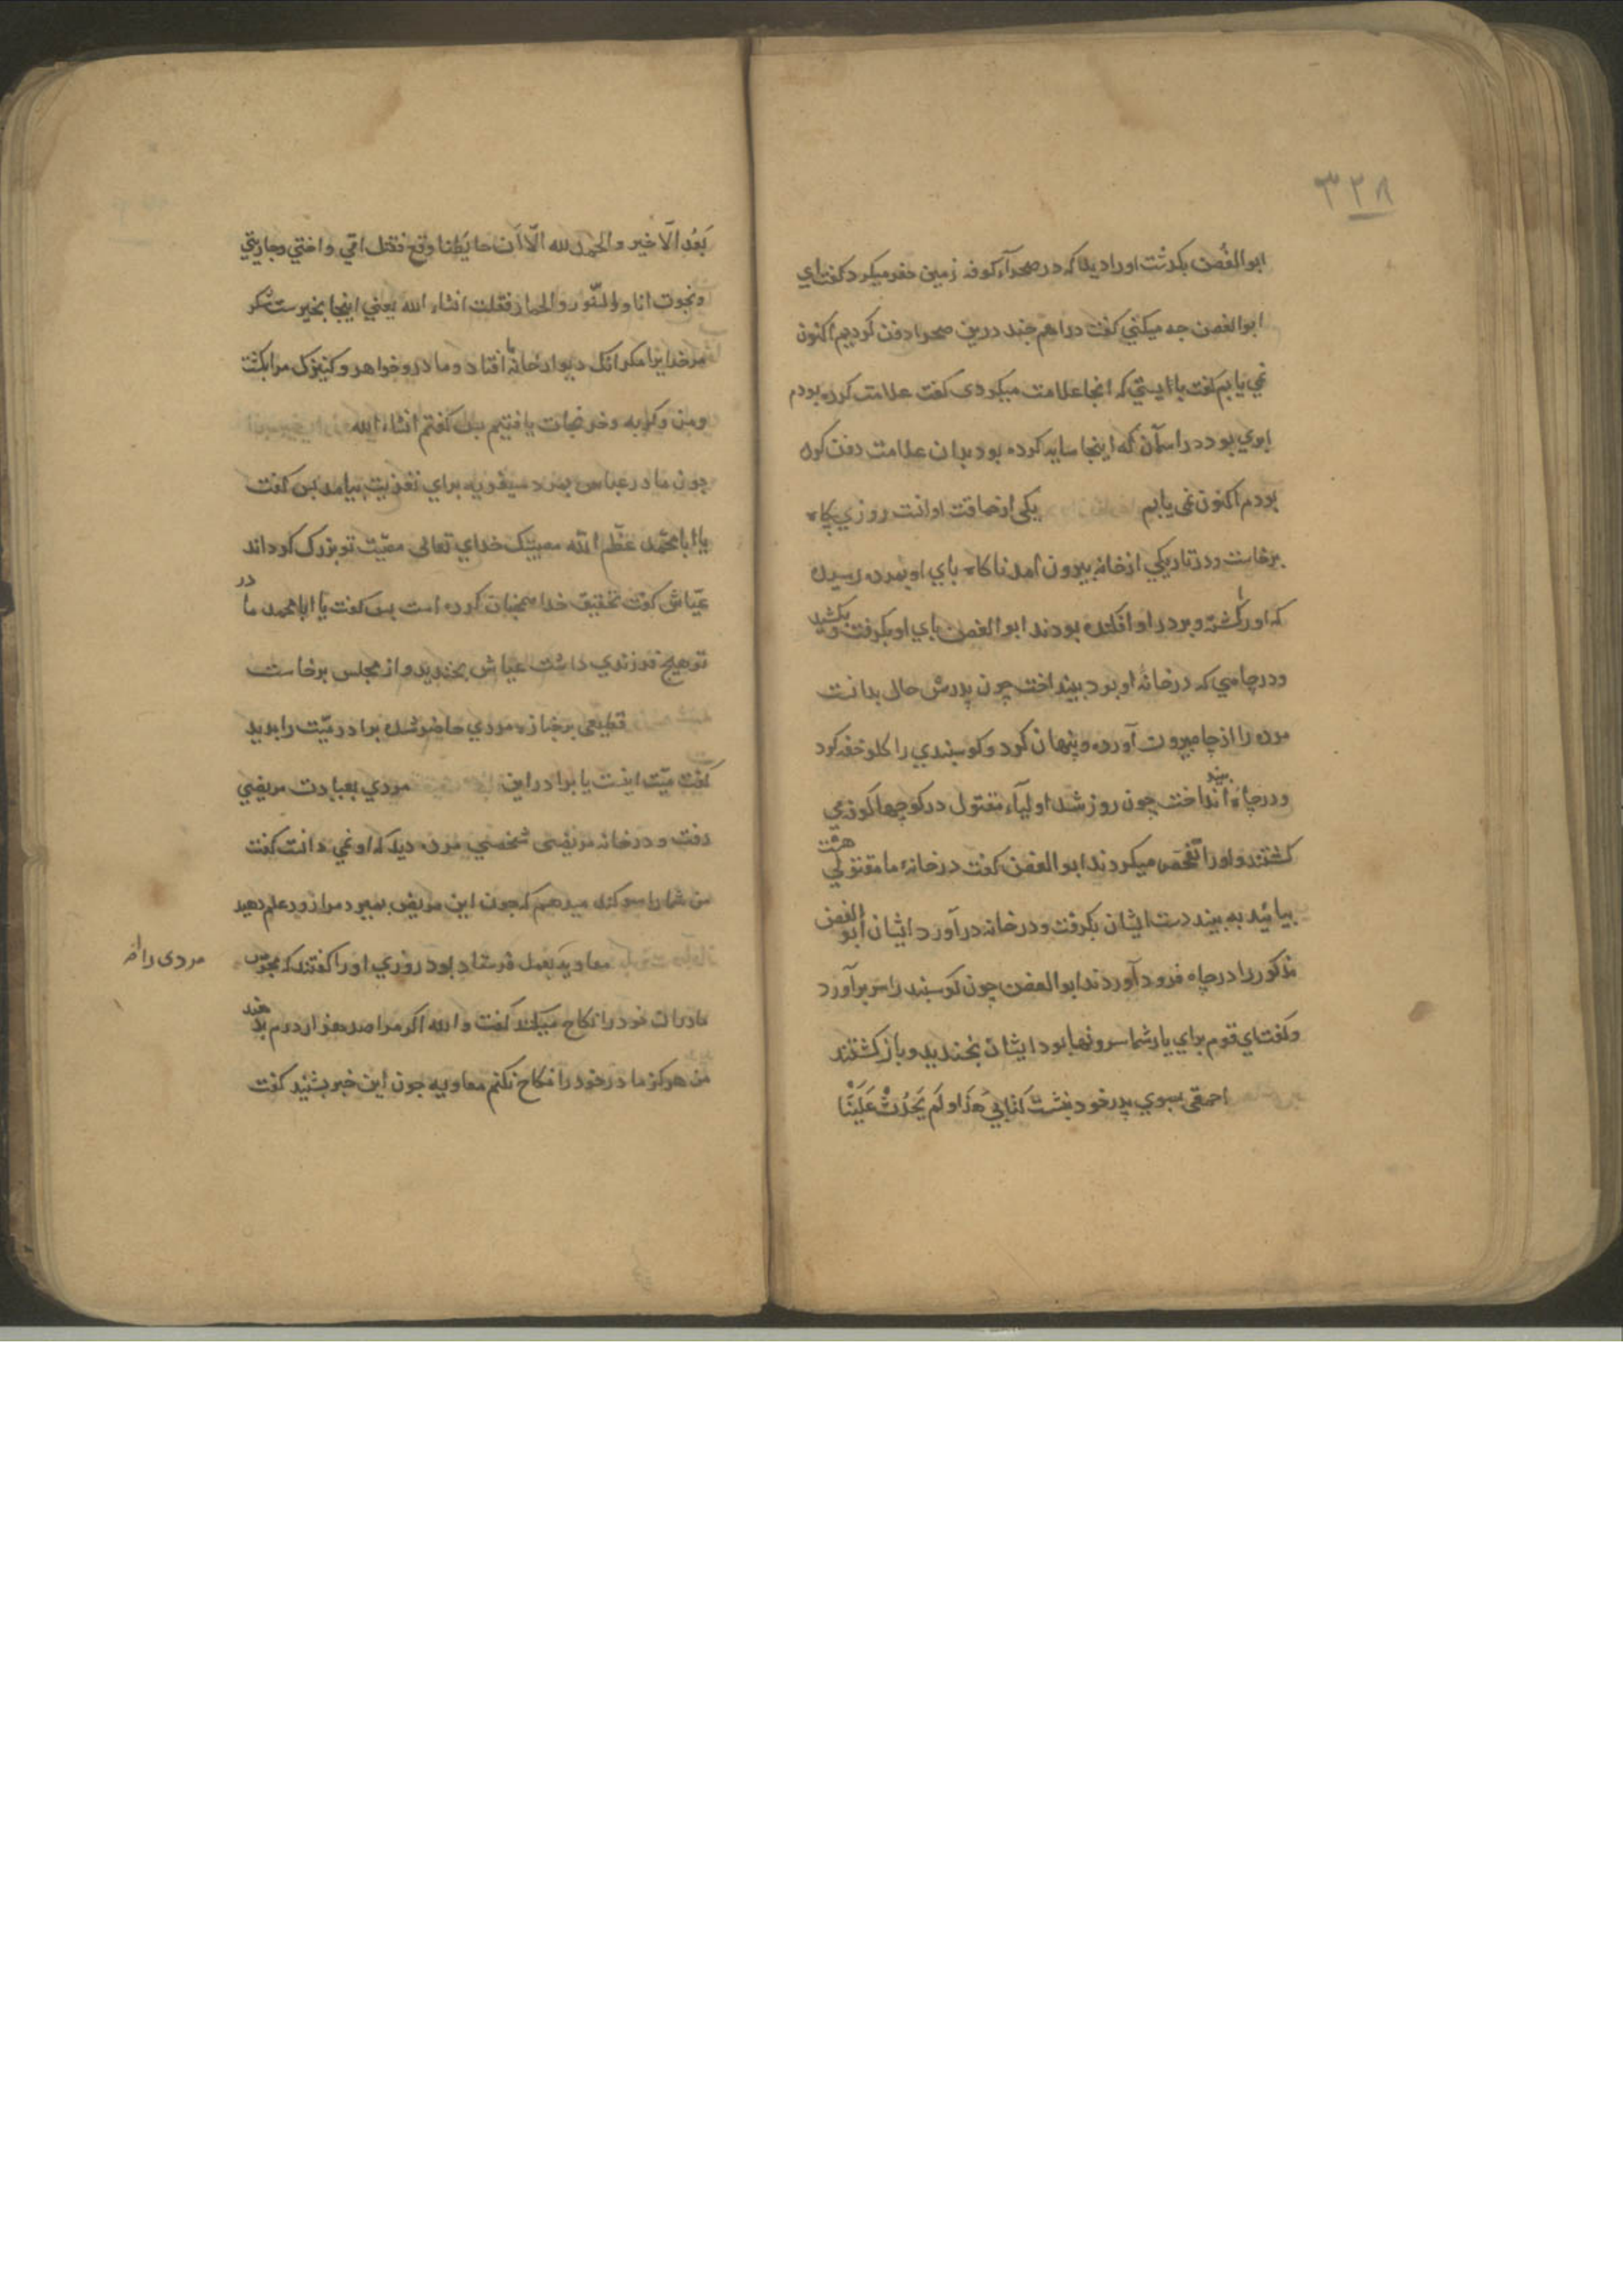 ٣٢٨
ابوالغُصن بکذشت اورا دید که در صحرآء کوفه زمین حفر میکرد کفت ای
ابوالغصن جه میکنی کفت دراهم جند درین صحرا دفن کردیم اکنون
نمی یابم کفت بایستی که انجا علامت میکردی کفت علامت کرده بودم
ابری بود در اسمان که اینجا سایه کرده بود بدان علامت دفن کرده
بودم اکنون نمی یابم یکی از حماقت او انست روزی بکاه
برخاست و در تاریکی از خانه بیرون امد ناکاه بای او بمرده رسید
که اورا کشته و بر در او افکنده بودند ابوالغصن بای او بکرفت و بکشید
و در چاهی که در خانهٔ او بود بینداخت چون پدرش حال بدانست
مرده را از چاه بیرون آورده و پنهان کرد و کوسبندی را کلو خفه کرد
و در چاه انداخت چون روز شد اولیآء مقتول در کوچها کوفه می
کشتند و اورا تفحّص میکردند ابوالغصن کفت در خانهٔ ما مقتولی هست
بیائید به بیند دست ایشان بکرفت و در خانه در آورد ایشان ابوالغصن
مذکور را در چاه فرود آوردند ابوالغصن چون کوسبند را سر برآورد
و کفت ای قوم برای یار شما سرونها بود ایشان بخندید و باز کشتند
احمقی بسوی پدر خود بنشت کتابی هَذَا و لَم یَحدُثْ عَلَیْنَا
بَعْدُ الّا خیر والحمد لله الّا اَن حایَطِنا وقع فقتل امّی و اختی و جاریتی
ونجوت انا والسّنور والحمار فقلت انشاء الله یعنی اینجا بخیرست شکر
مر خدایرا مکر انک دیوار خانهٔ ما افتاد و مادر و خواهر و کنیزک مرا بکشت
و من و کربه و خر نجات یافتیم بس کفتم انشاء الله
چون مادر عیاش بمرد سیفویه برای تعزیت بیامد بس کفت
یا ابا محمّد عظّم الله مصیبتک خدای تعالی مصیبت تو بزرک کرداند
عیّاش کفت تحقیق خدا همچنان کرده است بس کفت یا ابا محمد مادر
تو هیچ فرزندی داشت عیاش بخندید و از مجلس برخاست
قطیعی بر جنازهٔ مردی حاضر شده برادر میّت را بدید
کفت میّت اینست یا برادر این مردی بعیادت مریضی
رفت و در خانه مریضی شخصی مرده دید که او نمی دانست کفت
من شما را سوکند میدهم که جون این مریض بمیرد مرا زود علم دهید
مردی را معاویه بعمل فرستاد بود روزی اورا کفتند که مجوس
مادران خود را نکاح میکند کفت والله اکر مرا صد هزار درم بدهند
من هرکز مادر خود را نکاح نکنم معاویه جون این خبر بشنید کفت